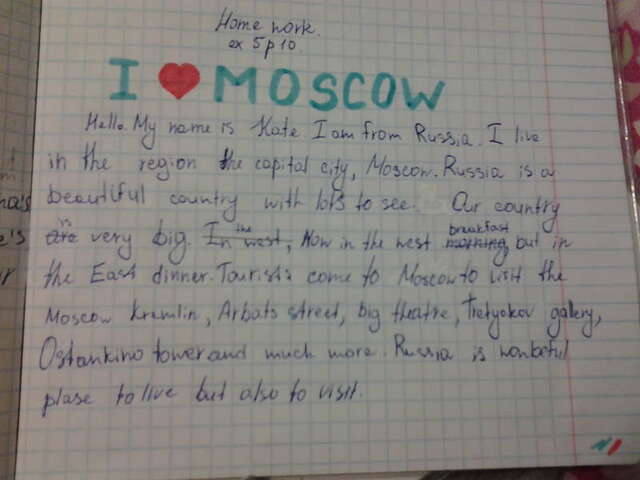 Home work.
ex 5 p 10.
I ❤ MOSCOW
Hello. My name is Kate I am from Russia. I live
in the region the capital city, Moscow. Russia is a
beautiful country with lots to see. Our country
is
are very big. In the west, Now in the west breakfast
morning, but in
the East dinner. Tourists come to Moscow to visit the
Moscow Kremlin, Arbats street, big theatre, Tretyokov gallery,
Ostankino tower and much more. Russia is wonbeful
plase to live but also to visit.